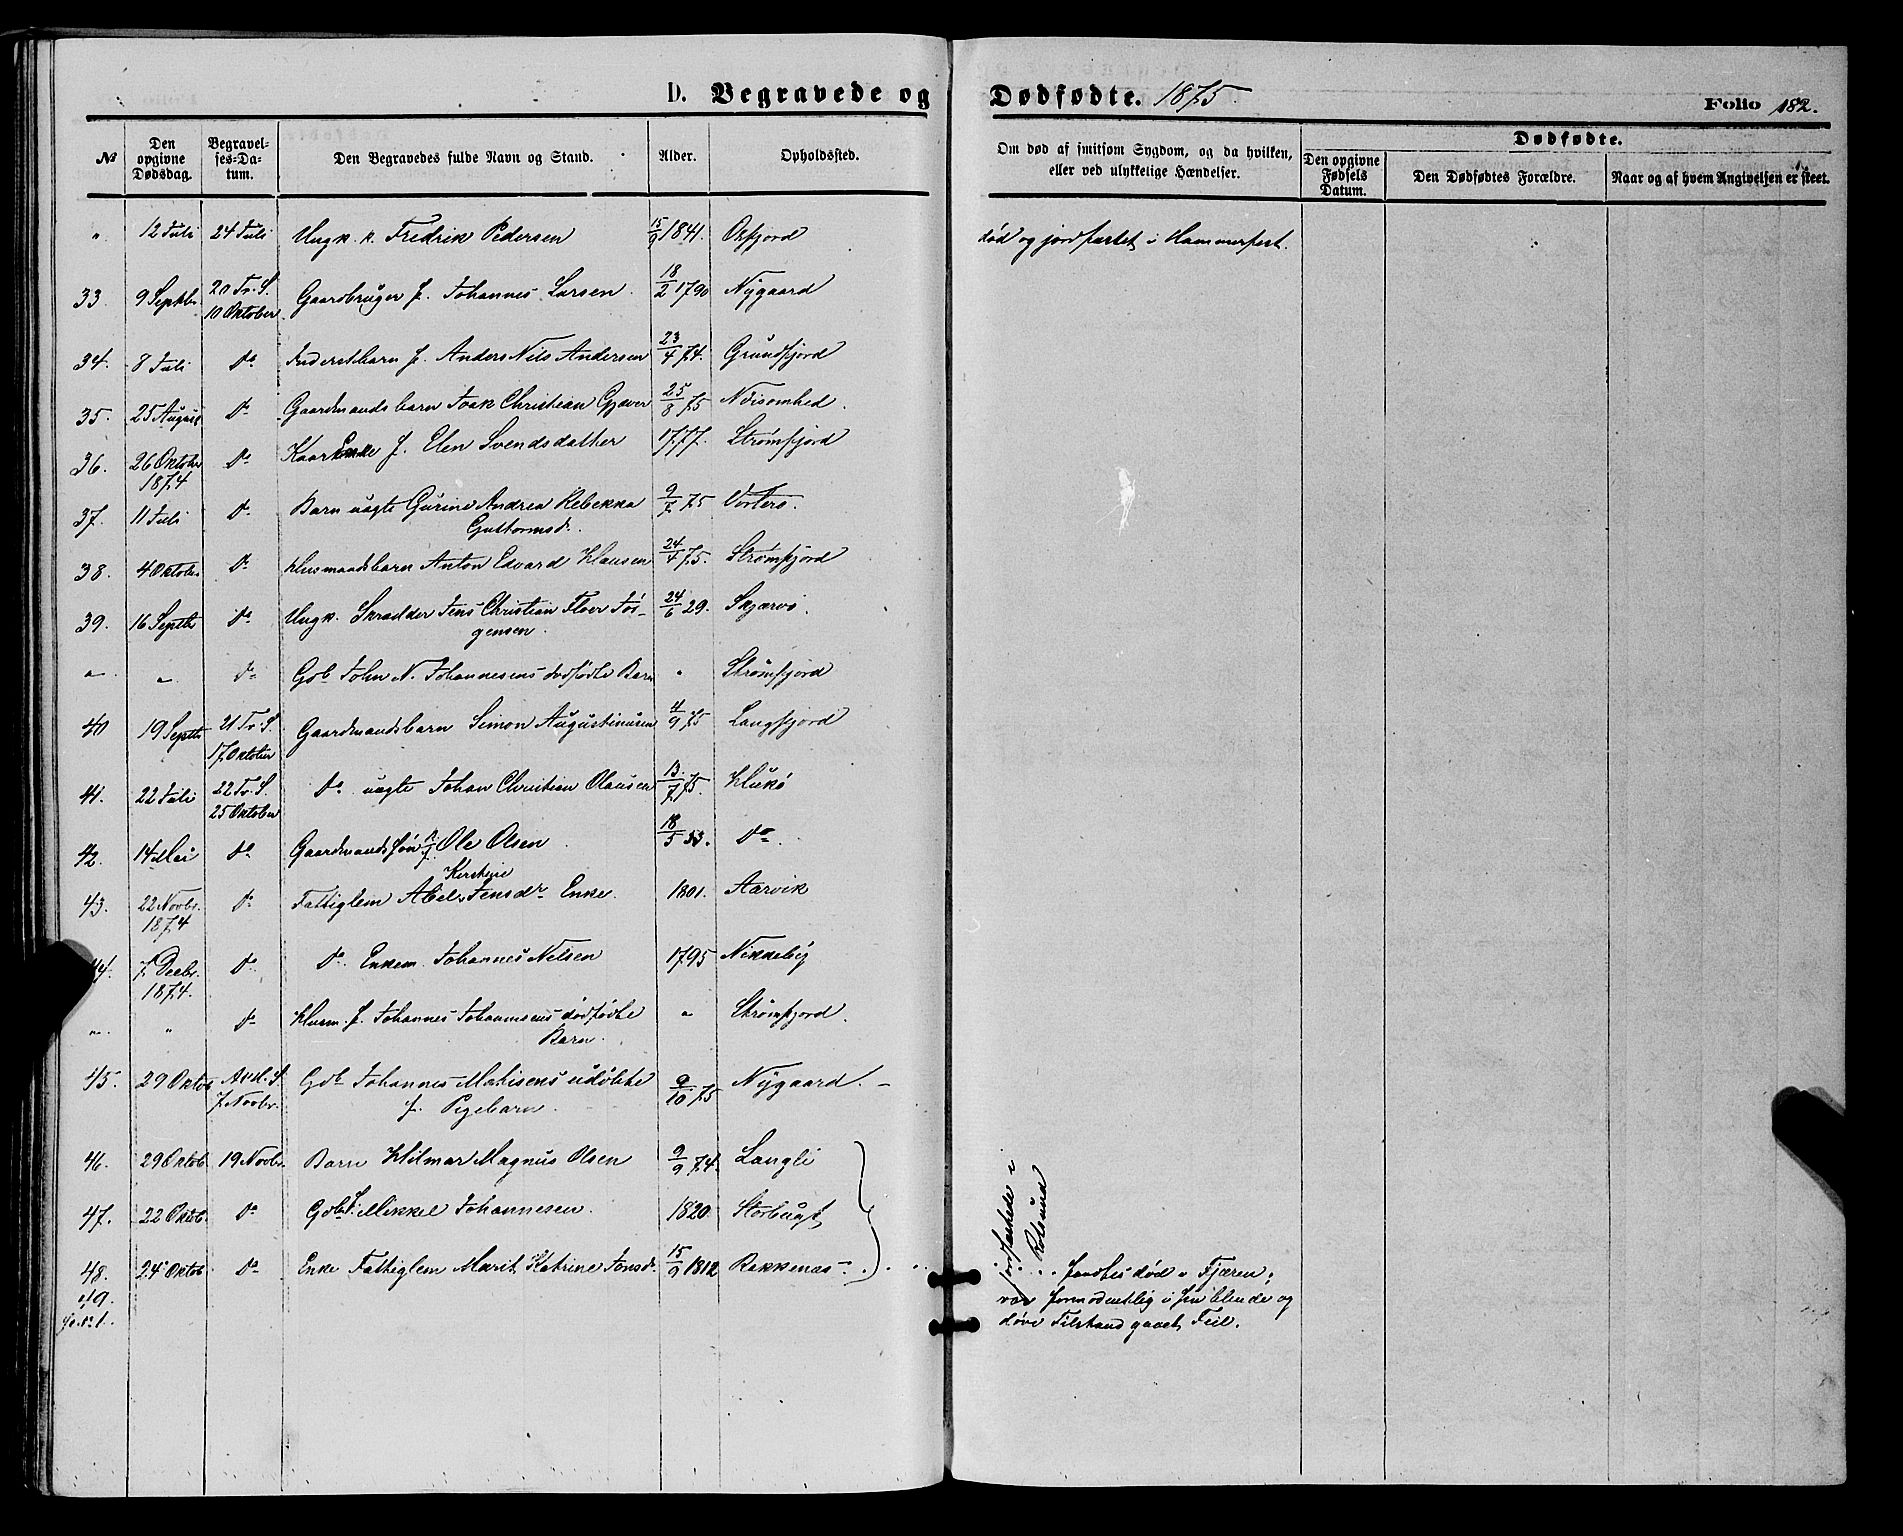 D. Begravede og Dødfødte. 1875. Folio 182.
№
Den opgivne Dødsdag.
Begravelses-Datum.
Den Begravedes fulde Navn og Stand.
Alder.
Opholdssted.
Om død af smitsom Sygdom, og da hvilken, eller ved ulykkelige Hændelser.
Dødfødte.
Den opgivne Fødsels Datum.
Den Dødfødtes Forældre.
Naar og af hvem Angivelsen er skeet.
" 12 Juli 24 Juli Ungk. k. Fredrik Pedersen 15/9 1841. Oxfjord død og jordfæstet i Hammerfest.
33. 9 Septbr. 20 Tr. S. 10 Oktober Gaardbruger f. Johannes Larsen 18/2 1790 Nygaard
34. 8 Juli Do Inderstbarn f. Anders Nils Andersen 23/4 74. Grundfjord
35. 25 August Do Gaardmandsbarn Isak Christian Gjæver 25/8 75 Nöisomhed.
36. 26 Oktobr 1874 Do Kaarenke f. Elen Svendsdatter 1777. Strømfjord
37. 11 Juli Do Barn uægte Gurine Andrea Rebekka Guttormsd. 9/7 75 Vorterö.
38. 4 Oktober Do Husmandsbarn Anton Edvard Klausen 24/4 75. Strømfjord
39. 16 Septbr Do Ungk. Skrædder Jens Christian Floer Jörgensen. 24/6 29. Skjærvö.
" " Do Gdb John N. Johannesens dødfødte Barn " Strømfjord
40 19 Septbr 21 Tr. S. 17 Oktober Gaardmandsbarn Simon Augustinusen 4/9 75 Langfjord
41. 22 Juli 22 Tr. S. 25 Oktober Do uægte Johan Christian Olausen 13/7 75. Hukö
42. 14 Mai Do Gaardmandssøn Ole Olsen 18/5 53. Do.
43. 22 Novbr. 1874 Do Fattiglem Abel Kirstine Jensdr Enke. 1801. Aarvik
44. 7 Decbr. 1874. Do Do Enkem. Johannes Nilsen 1795 Nikkeby
" " Do Husm. f. Johannes Johannesens dødfødte Barn. " Strømfjord.
45. 29 Oktob Avd. S. 7 Novbr. Gdb Johannes Mathisens udøbte f. Pigebarn. 9/10 75 Nygaard.
46. 29 Oktob 19 Novbr. Barn Hilmar Magnus Olsen 9/9 74. Langli
47. 22 Oktob. Do Gdb. Mikkel Johannesen. 1820. Storbugt
48. 24 Oktob Do Enke Fattiglem Marit Katrine Jonsd. 15/9 1812 Rekkenæs
jordfæstede i Rotsund
fandtes død i Fjæren; var formodentlig i sin blinde og døve Tilstand gaaet Feil.
49.